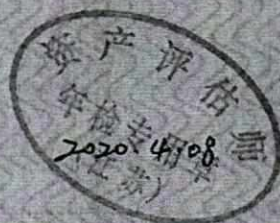 资产评估师
年检专用章
2020.4.08
（江苏）